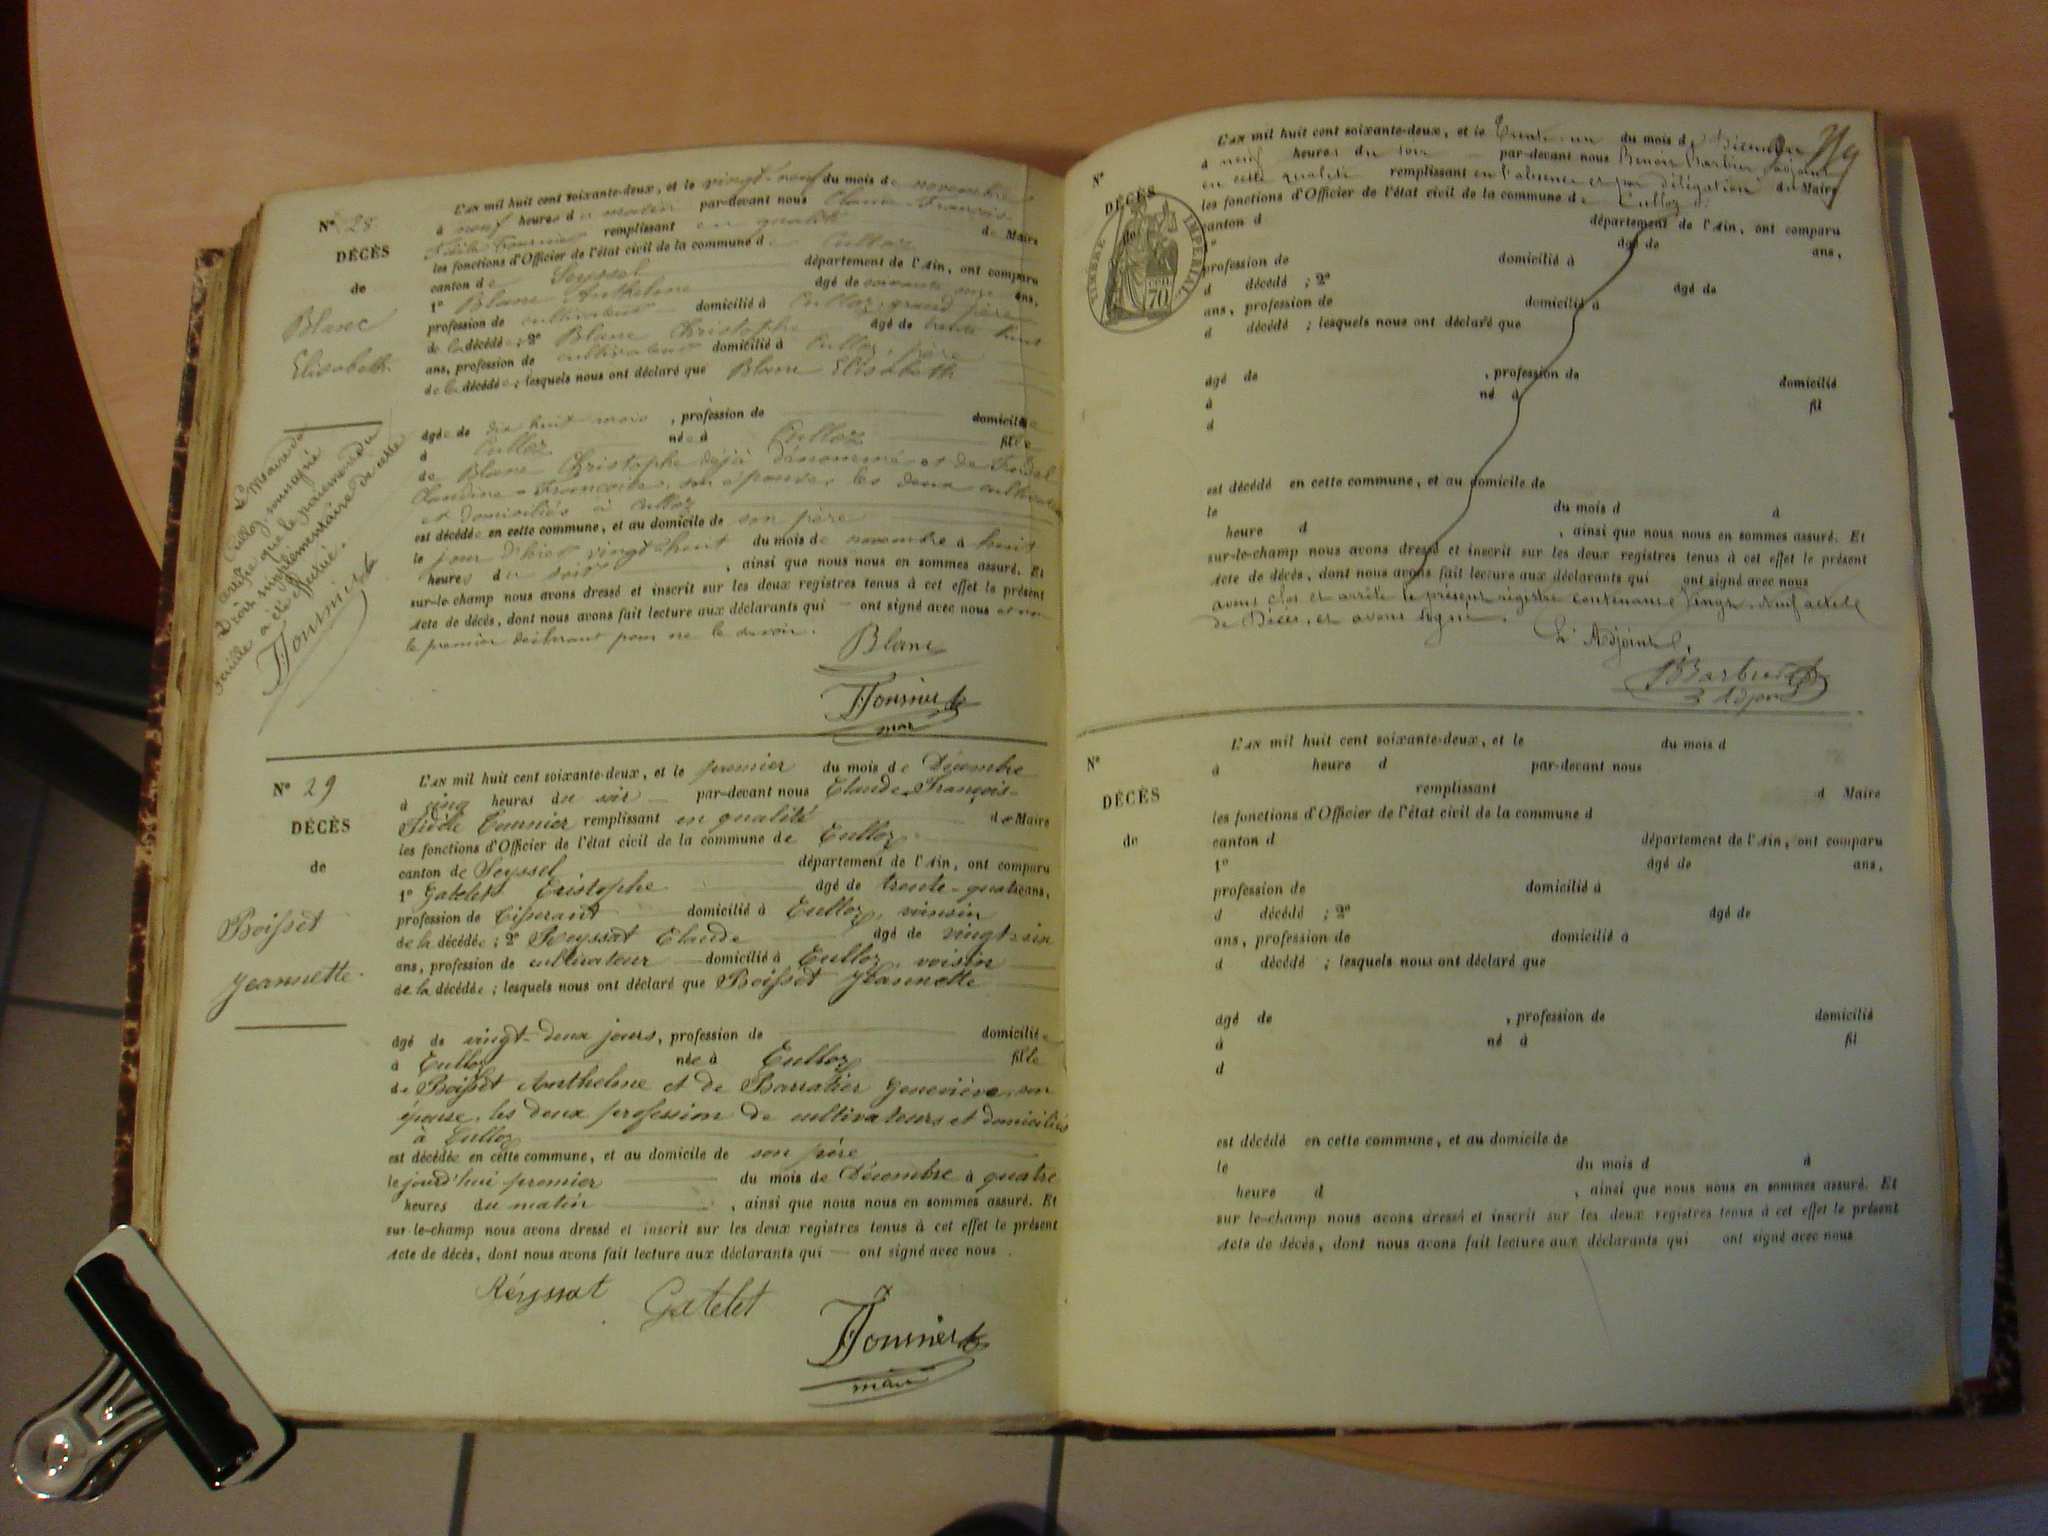 N° 28
DÉCÈS
de
Blanc
Elisabeth
L'an mil huit cent soixante-deux, et le vingt-neuf du mois de novembre
à neuf heures du matin par-devant nous Claude-François-
Fidèle Tournier remplissant en qualité de Maire
les fonctions d'Officier de l'état civil de la commune de Culloz
canton de Seyssel département de l'Ain, ont comparu
1° Blanc Anthelme âgé de soixante onze ans,
profession de cultivateur domicilié à Culloz, grand père
de la décédée ; 2° Blanc Christophe âgé de trente huit
ans, profession de cultivateur domicilié à Culloz, père
de la décédée ; lesquels nous ont déclaré que Blanc Elisabeth
âgée de dix huit mois , profession de domiciliée
à Culloz née à Culloz fille
de Blanc Christophe déjà dénommé et de
Claudine-Françoise, son épouse, les deux
et domiciliés à Culloz
est décédée en cette commune, et au domicile de son père
le jour d'hier vingt huit du mois de novembre à huit
heures du soir , ainsi que nous nous en sommes assuré. Et
sur-le-champ nous avons dressé et inscrit sur les deux registres tenus à cet effet le présent
Acte de décès, dont nous avons fait lecture aux déclarants qui — ont signé avec nous et non
le premier déclarant pour ne le savoir.
Blanc
Tournier
maire
Le Maire de
Culloz soussigné
certifie que le paiement du
Droit supplémentaire de cette
feuille a été effectué.
Tournier
N° 29
DÉCÈS
de
Boisset
Jeannette
L'an mil huit cent soixante-deux, et le premier du mois de Décembre
à cinq heures du soir — par-devant nous Claude-François-
Fidèle Tournier remplissant en qualité de Maire
les fonctions d'Officier de l'état civil de la commune de Culloz
canton de Seyssel département de l'Ain, ont comparu
1° Gatelet Cristophe âgé de trente-quatre ans,
profession de Tisserant domicilié à Culloz, voisin
de la décédée ; 2° Reyssat Claude âgé de vingt-six
ans, profession de cultivateur domicilié à Culloz, voisin
de la décédée ; lesquels nous ont déclaré que Boisset Jeannette
âgé de vingt-deux jours, profession de domiciliée
à Culloz née à Culloz fille
de Boisset Anthelme et de Barratier Geneviève, son
épouse, les deux profession de cultivateurs et domiciliés
à Culloz
est décédée en cette commune, et au domicile de son père
le jourd'hui premier du mois de Décembre à quatre
heures du matin , ainsi que nous nous en sommes assuré. Et
sur-le-champ nous avons dressé et inscrit sur les deux registres tenus à cet effet le présent
Acte de décès, dont nous avons fait lecture aux déclarants qui — ont signé avec nous .
Réyssat Gatelet
Tournier
maire
N°
DÉCÈS
de
TIMBRE IMPÉRIAL
70
L'an mil huit cent soixante-deux, et le Trente-un du mois de Décembre
à neuf heures du soir par-devant nous Benoit Barbier adjoint
en cette qualité remplissant en l'absence et par délégation du Maire
les fonctions d'Officier de l'état civil de la commune de Culloz
canton d département de l'Ain, ont comparu
1° âgé de ans,
profession de domicilié à
d décédé ; 2° âgé de
ans, profession de domicilié à
d décédé ; lesquels nous ont déclaré que
âgé de , profession de domicilié
à né à fil
d
est décédé en cette commune, et au domicile de
le du mois d à
heure d , ainsi que nous nous en sommes assuré. Et
sur-le-champ nous avons dressé et inscrit sur les deux registres tenus à cet effet le présent
Acte de décès, dont nous avons fait lecture aux déclarants qui ont signé avec nous
avons clos et arrêté le présent régistre contenant Vingt-Neuf actes
de Décès, et avons signé.
L'Adjoint,
Adjoint
N°
DÉCÈS
de
L'an mil huit cent soixante-deux, et le du mois d
à heure d par-devant nous
remplissant d Maire
les fonctions d'Officier de l'état civil de la commune d
canton d département de l'Ain, ont comparu
1° âgé de ans,
profession de domicilié à
d décédé ; 2° âgé de
ans, profession de domicilié à
d décédé ; lesquels nous ont déclaré que
âgé de , profession de domicilié
à né à fil
d
est décédé en cette commune, et au domicile de
le du mois d à
heure d , ainsi que nous nous en sommes assuré. Et
sur le-champ nous avons dressé et inscrit sur les deux registres tenus à cet effet le présent
Acte de décès, dont nous avons fait lecture aux déclarants qui ont signé avec nous